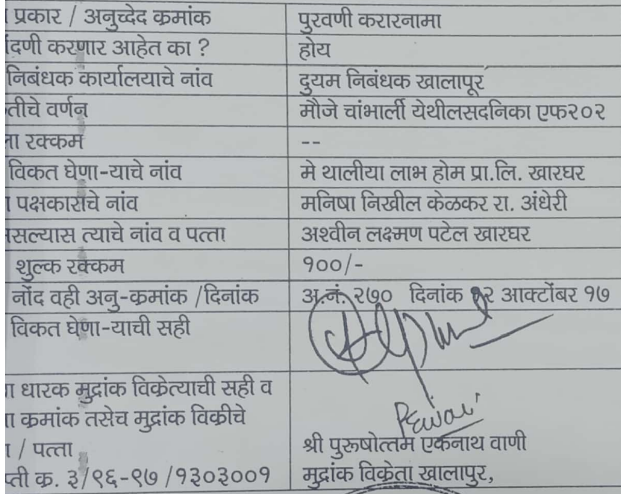 प्रकार / अनुच्छेद क्रमांक पुरवणी करारनामा
दणी करणार आहेत का ? होय
निबंधक कार्यालयाचे नांव दुयम निबंधक खालापूर
तीचे वर्णन मौजे चांभार्ली येथीलसदनिका एफ२०२
ला रक्कम --
विकत घेणा-याचे नांव मे थालीया लाभ होम प्रा.लि. खारघर
पक्षकाराचे नांव मनिषा निखील केळकर रा. अंधेरी
सल्यास त्याचे नांव व पत्ता अश्वीन लक्ष्मण पटेल खारघर
शुल्क रक्कम १००/-
नोंद वही अनु-क्रमांक /दिनांक अ.नं. २७० दिनांक १२ आक्टोंबर १७
विकत घेणा-याची सही
धारक मुद्रांक विक्रेत्याची सही व
क्रमांक तसेच मुद्रांक विक्रीचे
/ पत्ता श्री पुरूषोत्तम एकनाथ वाणी
प्ती क्र. ३/९६-९७ /१३०३००१ मुद्रांक विक्रेता खालापूर,